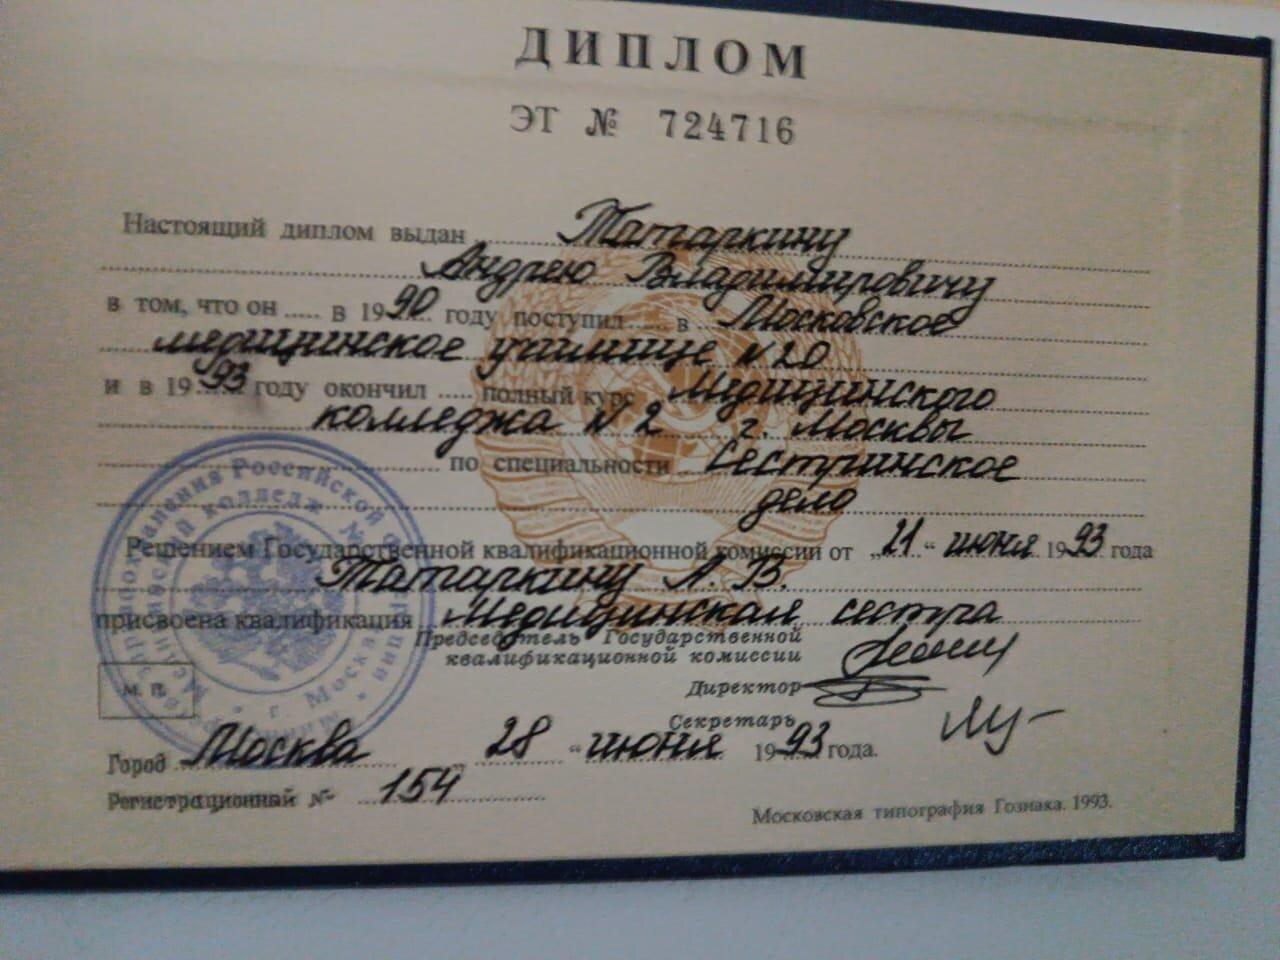 ДИПЛОМ
ЭТ № 724716
Настоящий диплом выдан Татаркину
Андрею Владимировичу
в том, что он в 1990 году поступил в Московское
медицинское училище N20
и в 1993 году окончил полный курс Медицинского
колледжа N2 г. Москвы
по специальности Сестринское
дело
Решением Государственной квалификационной комиссии от „21“ июня 1993 года
Татаркину А. В.
присвоена квалификация Медицинская сестра
Председатель Государственной
квалификационной комиссии
Директор
Секретарь
М. П.
Город Москва 28 “ июня 1993 года.
Регистрационный № 154
Московская типография Гознака. 1993.
здравоохранения Российской
Медицинский колледж №
г. Москва